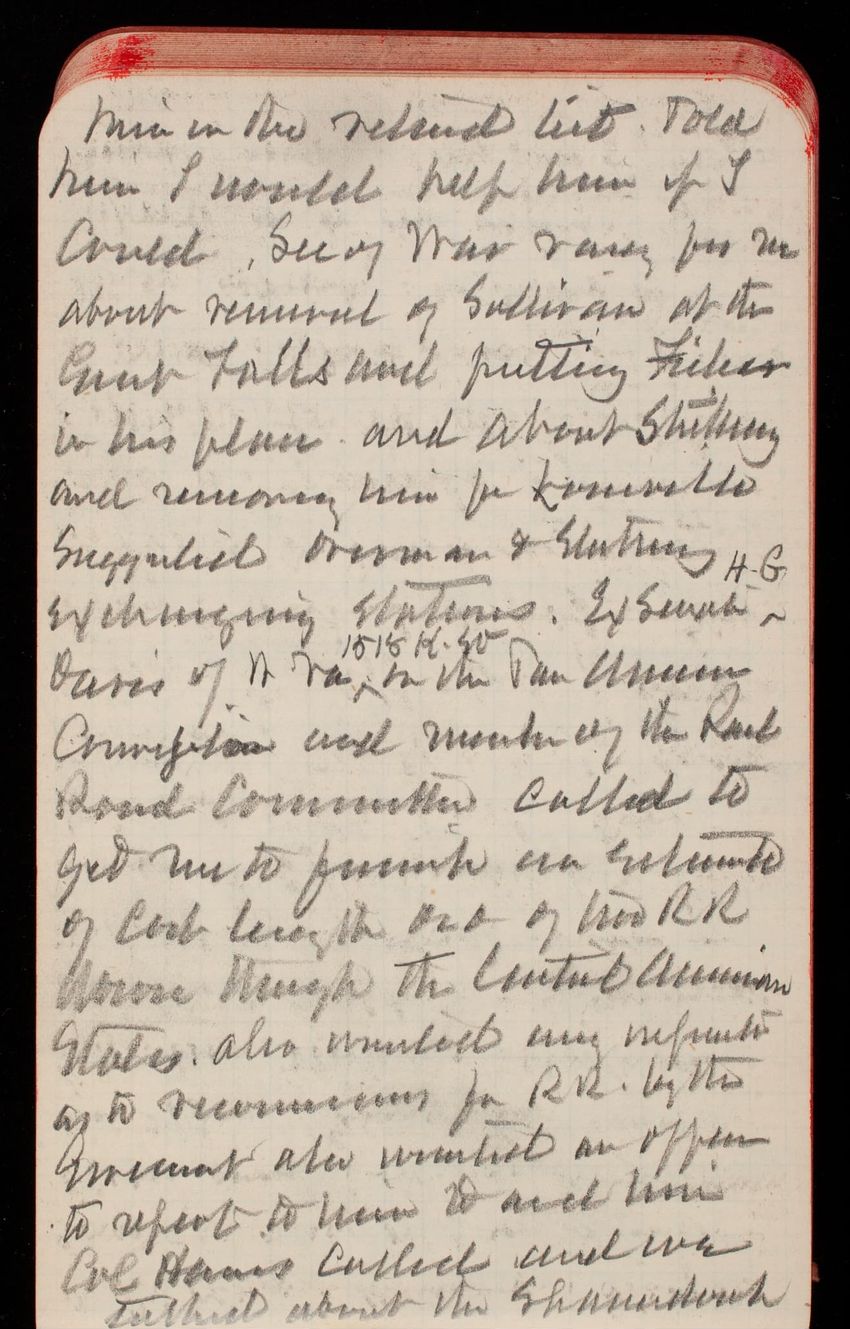 him on the retired list. Told
him I would help him if I
Could, Sec of War rang for me
about removal of Sullivan at the
Great Falls and putting Fisher
in his place and about
and removing him for
Suggested Overman &
H. G.
Exchanging Stations. Ex Senator
1515 K. St
Davis of W Va, on the Pan American
and member of the Rail
Road Committee called to
get me to furnish an estimate
of Cost length &c of the RR
down through the Central American
States. also wanted any reports
as to for RR. by the
also wanted an officer
to report to him to aid him
Col called and we
talked about the Shenandoah